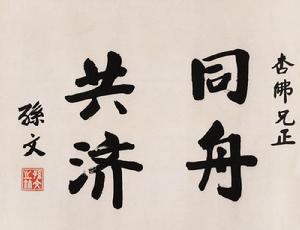 杏佛兄正
同舟
共济
孫文